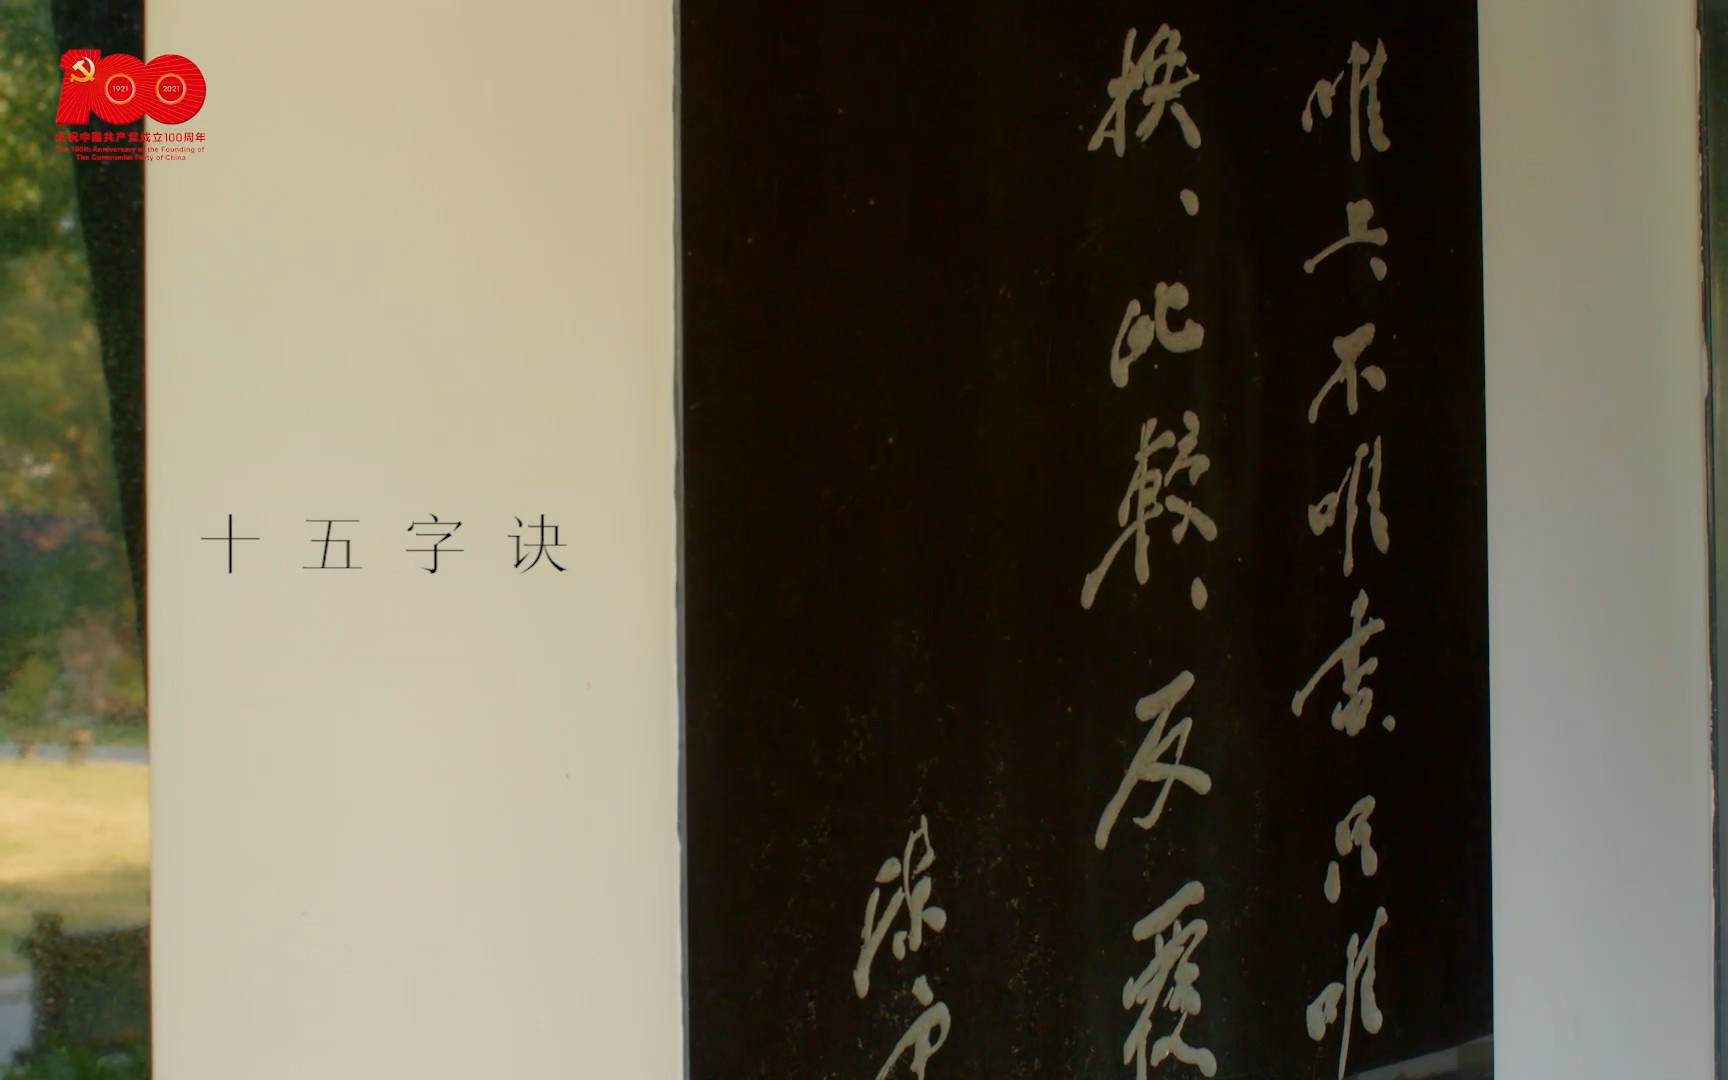 100
1921
2021
庆祝中国共产党成立100周年
The 100th Anniversary of the Founding of
The Communist Party of China
十五字诀
唯上不唯書只唯
换、比較、反覆
陳雲